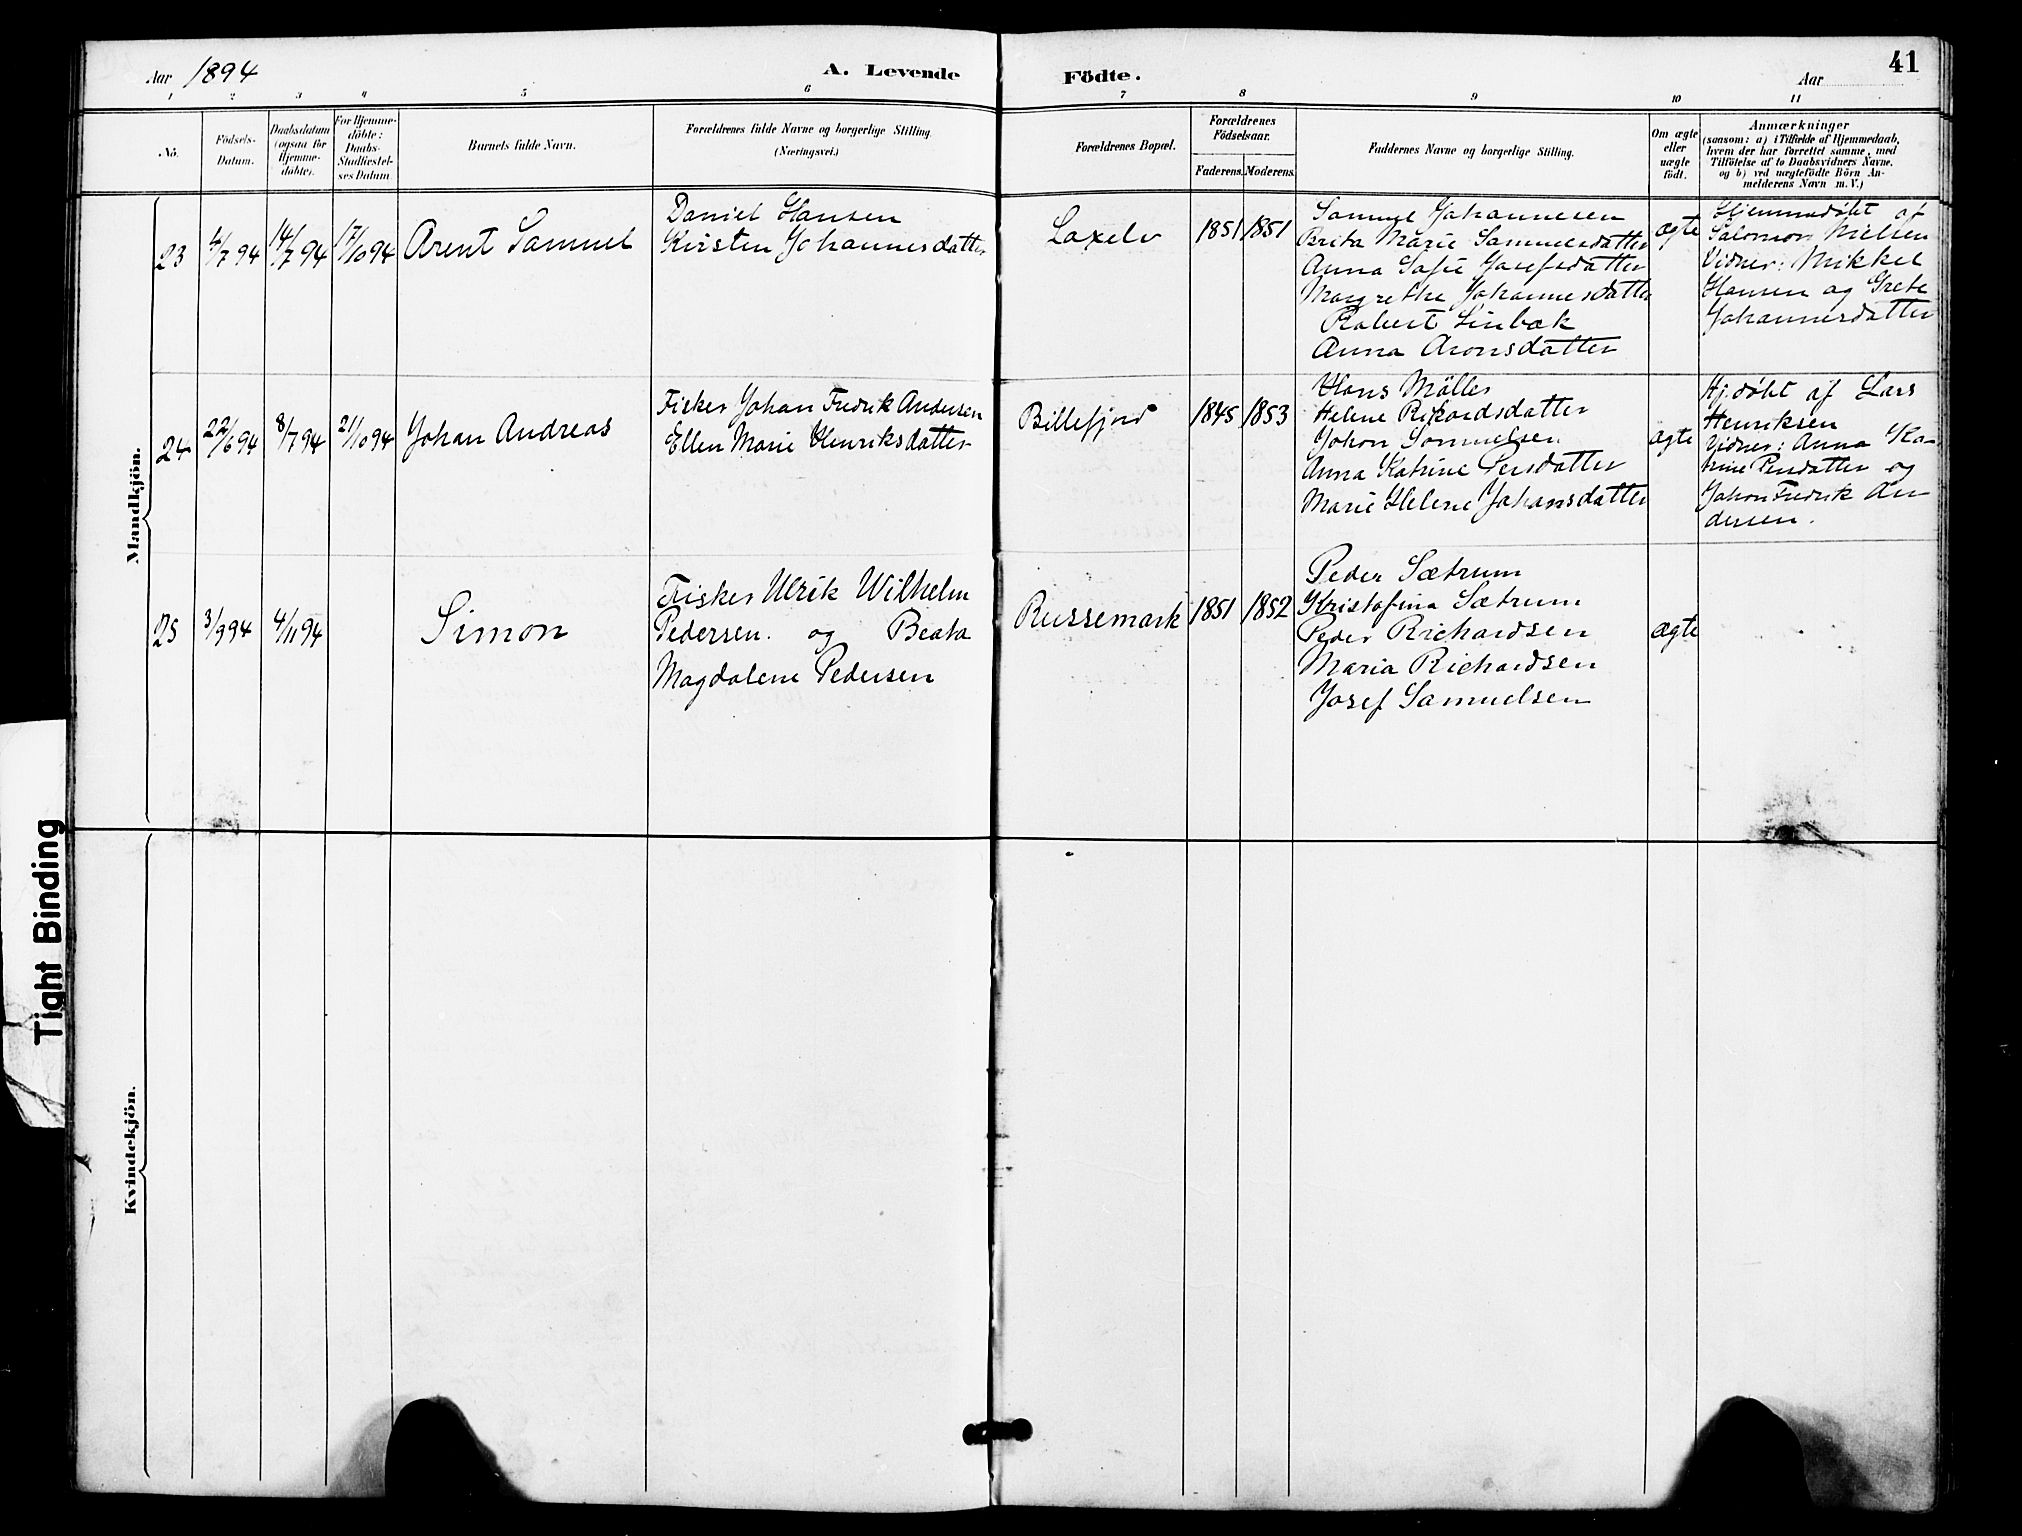 Aar 1894
A. Levende
Födte.
Aar
41
1 2 3 4 5 6 7 8 9 10 11
No.
Födsels-
Datum.
Daabsdatum
(ogsaa for
Hjemme-
döbte).
For Hjemme-
döbte:
Daabs-
Stadfæstel-
ses Datum
Barnets fulde Navn.
Forældrenes fulde Navne og borgerlige Stilling.
(Næringsvei.)
Forældrenes Bopæl.
Forældrenes
Födselsaar.
Faderens. Moderens.
Faddernes Navne og borgerlige Stilling.
Om ægte
eller
uægte
födt.
Anmærkninger
(saasom: a) i Tilfælde af Hjemmedaab,
hvem der har forrettet samme, med
Tilföielse af to Daabsvidners Navne.
og b) ved uægtefödte Börn An-
melderens Navn m. V.)
Mandkjön.
23
4/7 94
14/7 94
17/10 94
Arent Samuel
Daniel Hansen
Kirsten Johannesdatter
Laxelv
1851
1851
Samuel Johannesen
Brita Marie Samuelsdatter
Anna Sofie Josefsdatter
Margrethe Johannesdatter
Robert Linbak
Anna Aronsdatter
ægte
Hjemmedøbt af
Salomon Nielsen
Vidner: Mikkel
Hansen og Grete
Johannesdatter
24
22/6 94
8/7 94
21/10 94
Johan Andreas
Fisker Johan Fredrik Andersen
Ellen Marie Henriksdatter
Billefjord
1845
1853
Hans Möller
Helene Rikardsdatter
Johan Samuelsen
Anna Katrine Persdatter
Marie Helene Johansdatter
ægte
Hj.døbt af Lars
Henriksen
Vidner: Anna Ka-
trine Persdatter og
Johan Fredrik An
dersen.
25
3/9 94
4/11 94
Simon
Fisker Ulrik Wilhelm
Pedersen. og Beata
Magdalene Pedersen
Russemark
1851
1852
Peder Sætrum
Kristofina Sætrum
Peder Richardsen
Maria Richardsen
Josef Samuelsen
ægte
Kvindekjön.
Tight Binding